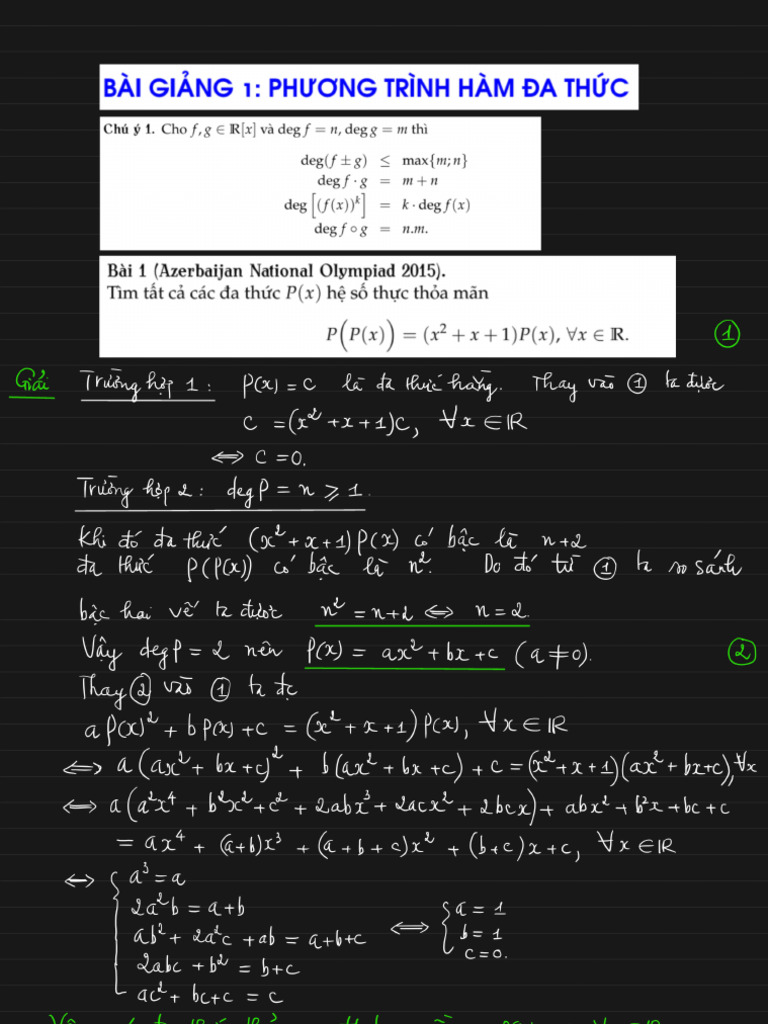 BÀI GIẢNG 1: PHƯƠNG TRÌNH HÀM ĐA THỨC
Chú ý 1. Cho f, g ∈ ℝ[x] và deg f = n, deg g = m thì
deg(f ± g) ≤ max{m; n}
deg f · g = m + n
deg [(f(x))^k] = k · deg f(x)
deg f ∘ g = n.m.
Bài 1 (Azerbaijan National Olympiad 2015).
Tìm tất cả các đa thức P(x) hệ số thực thỏa mãn
P(P(x)) = (x² + x + 1)P(x), ∀x ∈ ℝ. ①
Giải Trường hợp 1: P(x) = c là đa thức hằng. Thay vào ① ta được
c = (x² + x + 1)c, ∀x ∈ ℝ
⟺ c = 0.
Trường hợp 2: deg P = n ⩾ 1.
Khi đó đa thức (x² + x + 1)P(x) có bậc là n+2
đa thức P(P(x)) có bậc là n². Do đó từ ① ta so sánh
bậc hai vế ta được n² = n+2 ⟺ n = 2.
Vậy deg P = 2 nên P(x) = ax² + bx + c (a ≠ 0). ②
Thay ② vào ① ta đc
a P(x)² + b P(x) + c = (x² + x + 1) P(x), ∀x ∈ ℝ
⟺ a(ax² + bx + c)² + b(ax² + bx + c) + c = (x² + x + 1)(ax² + bx + c), ∀x
⟺ a(a²x⁴ + b²x² + c² + 2abx³ + 2acx² + 2bcx) + abx² + b²x + bc + c
= ax⁴ + (a+b)x³ + (a+b+c)x² + (b+c)x + c, ∀x ∈ ℝ
⟺ { a³ = a
2a²b = a+b
ab² + 2a²c + ab = a+b+c
2abc + b² = b+c
ac² + bc + c = c
⟺ { a = 1
b = 1
c = 0.